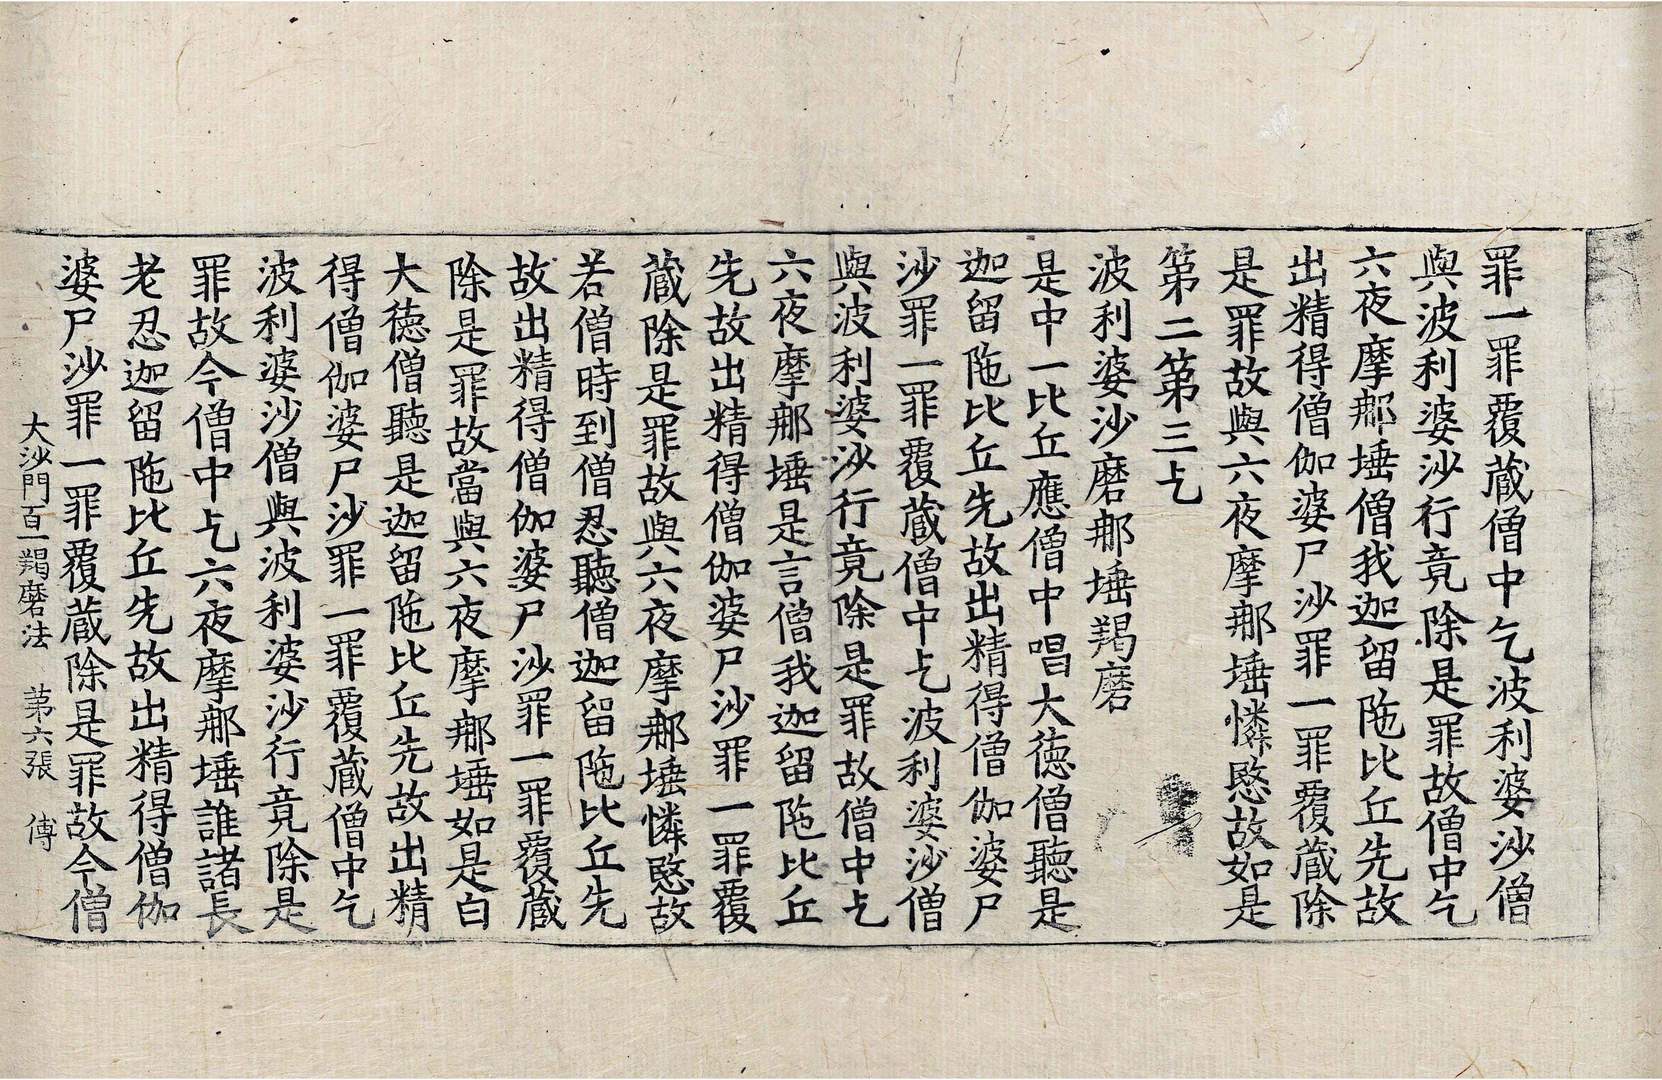 罪一罪覆藏僧中乞波利婆沙僧
與波利婆沙行竟除是罪故僧中乞
六夜摩那埵僧我迦留陁比丘先故
出精得僧伽婆尸沙罪一罪覆藏除
是罪故與六夜摩那埵憐愍故如是
第二第三乞
波利婆沙磨那埵羯磨
是中一比丘應僧中唱大德僧聽是
迦留陁比丘先故出精得僧伽婆尸
沙罪一罪覆藏僧中乞波利婆沙僧
與波利婆沙行竟除是罪故僧中乞
六夜摩那埵是言僧我迦留陁比丘
先故出精得僧伽婆尸沙罪一罪覆
藏除是罪故與六夜摩那埵憐愍故
若僧時到僧忍聽僧迦留陁比丘先
故出精得僧伽婆尸沙罪一罪覆藏
除是罪故當與六夜摩那埵如是白
大德僧聽是迦留陁比丘先故出精
得僧伽婆尸沙罪一罪覆藏僧中乞
波利婆沙僧與波利婆沙行竟除是
罪故今僧中乞六夜摩那埵誰諸長
老忍迦留陁比丘先故出精得僧伽
婆尸沙罪一罪覆藏除是罪故今僧
大沙門百一羯磨法 第六張 傅